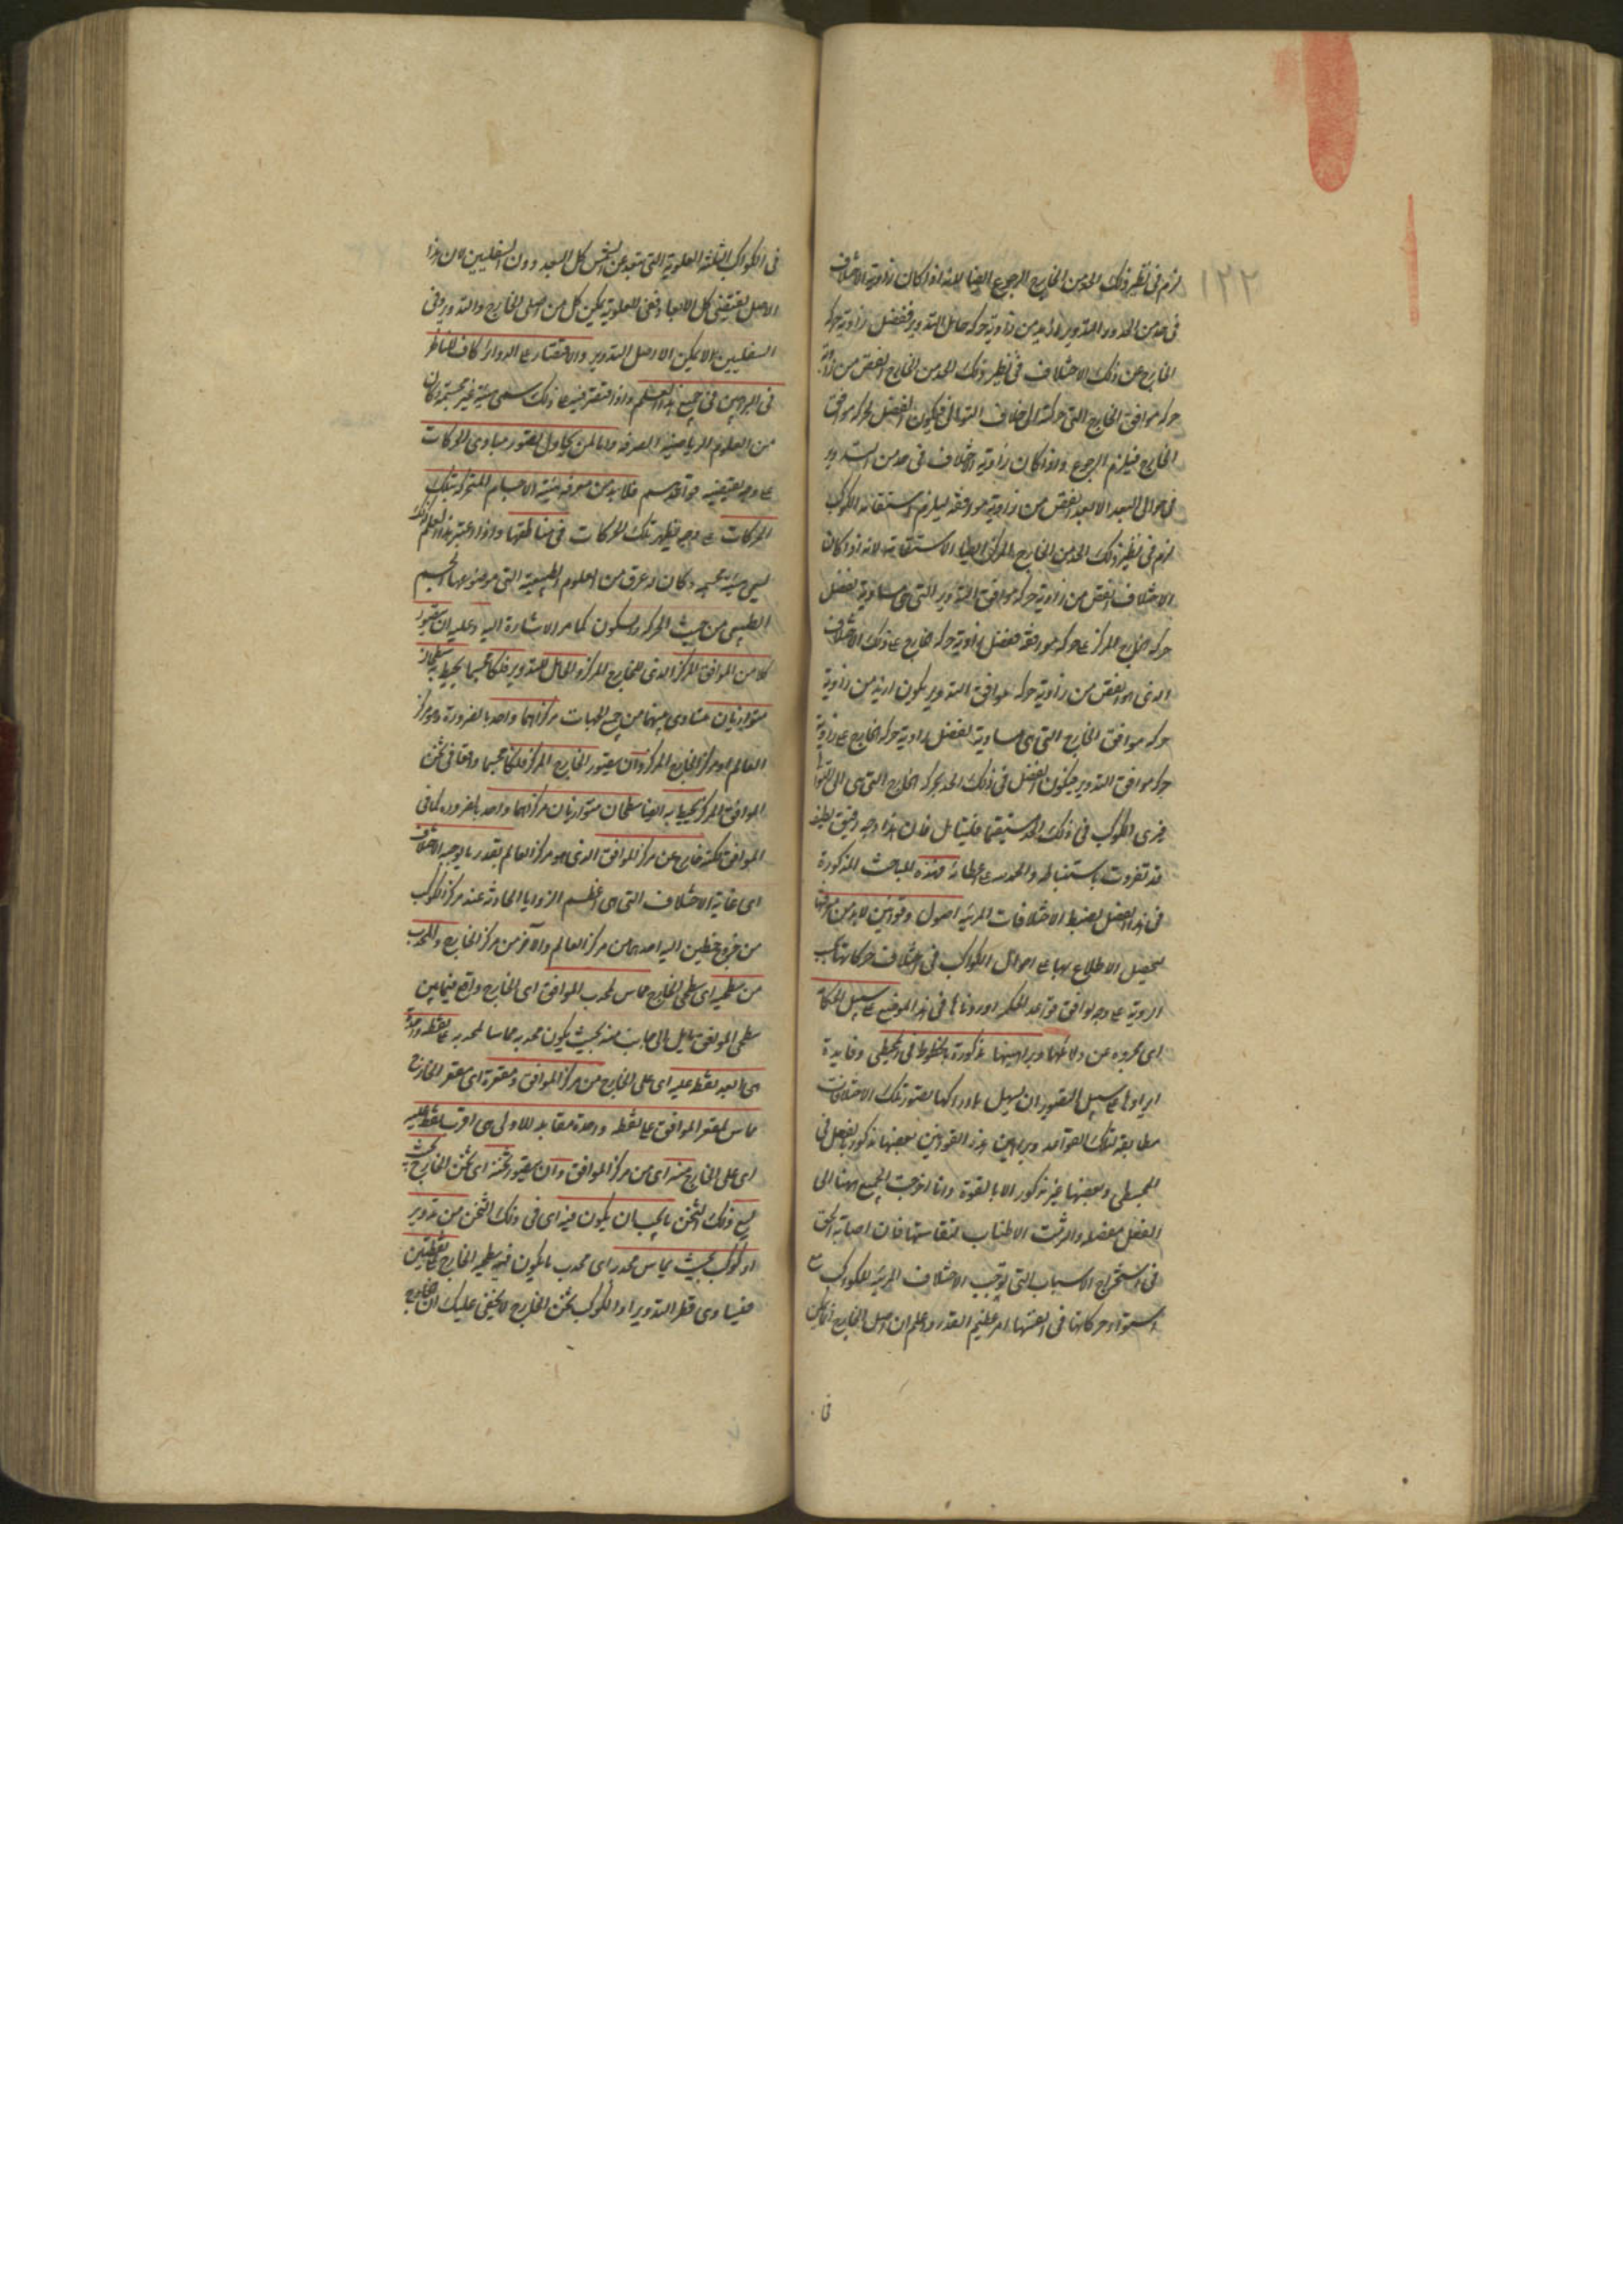 ١٢٢
لزم فى نظير ذلك الحد من الخارج الرجوع ايضا لانه اذا كان زاوية الاختلاف
فى حد من الحدود التدوير ازيد من زاوية حركة حامل التدوير ففضل زاوية حركة
الخارج عن ذلك الاختلاف فى نظير ذلك الحد من الخارج انقص من زاوية
حركة موافق الخارج التى حركته الى خلاف التوالى فيكون الفضل لحركة موافق
الخارج فيلزم الرجوع واذا كان زاوية الاختلاف فى حد من التدوير
فى حوالى البعد الابعد انقص من زاوية موافقه فيلزم استقامة الكوكب
لزم فى نظير ذلك الحد من الخارج المركز ايضا الاستقامة لانه اذا كان
الاختلاف انقص من زاوية حركة موافق التدوير التى هى مساوية لفضل
حركة خارج المركز على حركة موافقه ففضل زاوية حركة الخارج على ذلك الاختلاف
الذى هو انقص من زاوية حركة موافق التدوير يكون ازيد من زاوية
حركة موافق الخارج التى هى مساوية لفضل زاوية حركة الخارج على زاوية
حركة موافق التدوير فيكون الفضل فى ذلك الحد لحركة الخارج التى هى الى التوالى
فيرى الكوكب فى ذلك الحد مستقيما فليتامل فان هذا وجه دقيق لطيف
قد تفردت باستنباطه والحمد لله على عطائه فهذه المباحث المذكورة
فى هذا الفصل لضبط الاختلافات المرئية اصول وقوانين لابد من معرفتها
لتحصيل الاطلاع بها على احوال الكواكب فى اختلاف حركاتها بحسب
الروية على وجه يوافق قواعد الحكمة اوردناها فى هذا الموضع على سبيل الحكاية
اى مجردة عن دلائلها وبراهينها مذكورة بالخطوط فى المجسطى وفايدة
ايرادها على سبيل التصوير ان يسهل بادراكها تصور تلك الاختلافات
مطابقة لتلك القواعد وبراهين هذه القوانين بعضها مذكور بالفعل فى
المجسطى وبعضها غير مذكور الا بالقوة وانا اخرجت الجميع ههنا الى
الفعل مفصلة واثرت الاطناب لنفاستها فان اصابة الحق
فى استخراج الاسباب التى توجب الاختلاف المرئية للكواكب مع
استواء حركاتها فى انفسها امر عظيم القدر واعلم ان اصل الخارج انما يمكن
فى
فى الكواكب الثلثة العلوية التى تبعد عن الشمس كل البعد دون السفليين لان هذا
الاصل يقتضى كل الابعاد ففى العلوية يمكن كل من اصلى الخارج والتدوير وفى
السفليين لا يمكن الا اصل التدوير والاقتصار على الدوائر كاف للناظر
فى البراهين فى جميع هذا العلم واذا اقتصر فيه على ذلك سمى هيئة غير مجسمة وكان
من العلوم الرياضية الصرفة واما لمن يحاول تصور مبادى الحركات
على وجه يقتضيه قواعدهم فلابد من معرفة هيئة الاجسام المتحركة بتلك
الحركات على وجه يظهر تلك الحركات فى مناطقها واذا اعتبر هذا العلم كذلك
سمى هيئة مجسمة وكان له عرق من العلوم الطبيعية التى موضوعها الجسم
الطبيعى من حيث الحركة والسكون كما مر الاشارة اليه وعليه ان يتصور
كلا من الموافق المركز الذى للخارج المركز والحامل للتدوير فلكا مجسما يحيط به سطحان
متوازيان متساوى بينهما من جميع الجهات مركزاهما واحد بالضرورة وهو مركز
العالم او مركز الخارج المركز وان يتصور الخارج المركز فلكا مجسما واقعا فى ثخن
الموافق المركز يحيط به ايضا سطحان متوازيان مركزاهما واحد بالضرورة كما فى
الموافق لكنه خارج عن مركز الموافق الذى هو مركز العالم بقدر ما يوجبه الاختلاف
اى غاية الاختلاف التى هى اعظم الزوايا الحادثة عند مركز الكوكب
من خروج خطين اليه احدهما من مركز العالم والآخر من مركز الخارج والمحدب
من سطحيه اى سطحى الخارج مماس لمحدب الموافق اى الخارج واقع فيما بين
سطحى الموافق مايل الى جانب منه بحيث يكون محدبه مماسا لمحدبه على نقطة واحدة
هى ابعد نقطة عليه اى على الخارج من مركز الموافق ومقعره اى مقعر الخارج
مماس لمقعر الموافق على نقطة واحدة مقابلة للاولى هى اقرب نقطة عليه
اى على الخارج منه اى من مركز الموافق وان يتصور ثخنه اى ثخن الخارج بحيث
يسع ذلك الثخن ما يجب ان يكون فيه اى فى ذلك الثخن من تدوير
او كوكب بحيث يماس محدبه اى محدب ما يكون فيه سطحى الخارج على نقطتين
فيساوى قطر التدوير او الكوكب ثخن الخارج لا يخفى عليك ان الخارج